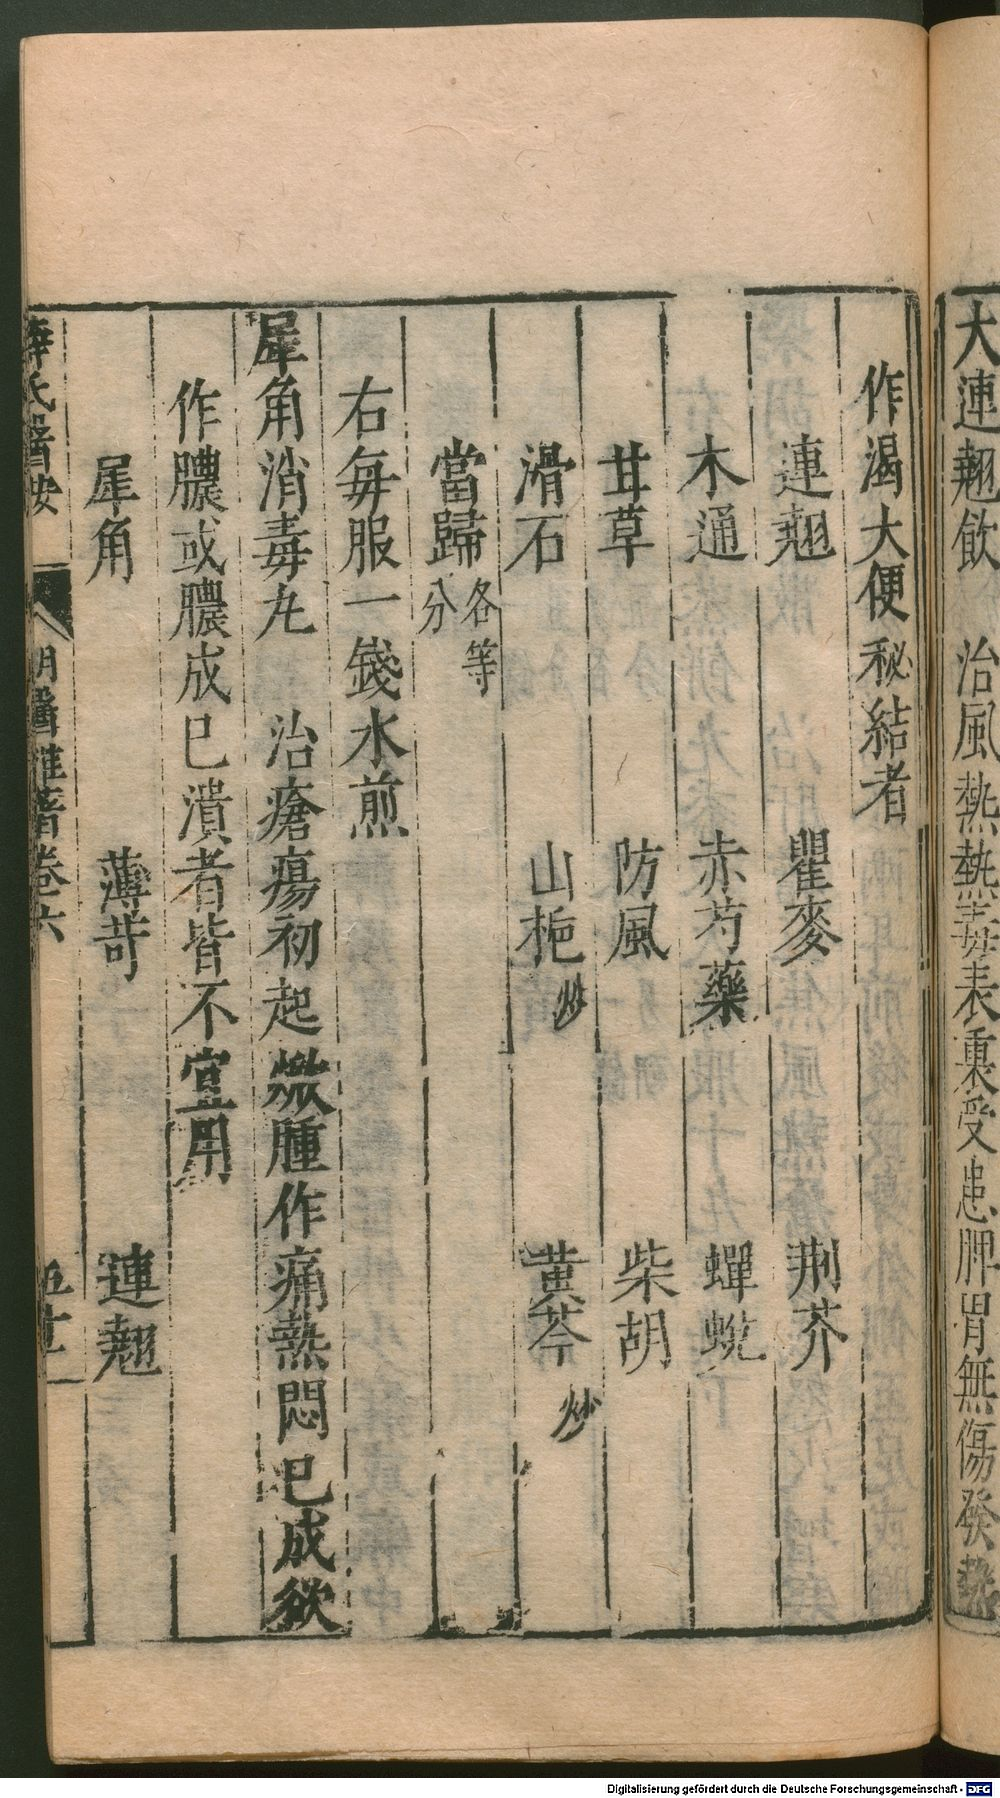 大連翹飲　治風熱熱毒表裏受患脾胃無傷發熱
作渴大便秘結者
連翹　瞿麥　荆芥
木通　赤芍藥　蟬蛻
甘草　防風　柴胡
滑石　山梔炒　黃芩炒
當歸各等分
右每服一錢水煎
犀角消毒丸　治瘡瘍初起焮腫作痛熱悶已成欲
作膿或膿成已潰者皆不宜用
犀角　薄荷　連翹
薛氏醫按　明醫雜著卷六
Digitalisierung gefördert durch die Deutsche Forschungsgemeinschaft - DFG